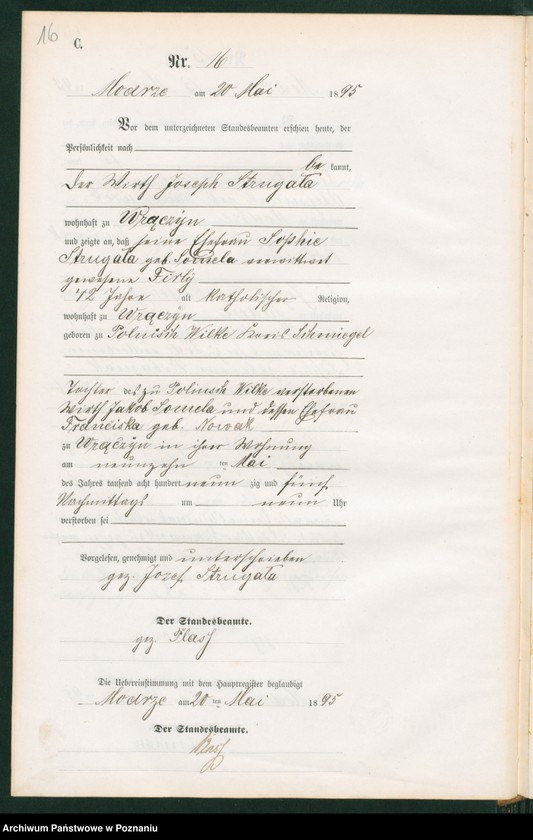 16
C.
Nr. 16
Modrze am 20 Mai 1895
Vor dem unterzeichneten Standesbeamten erschien heute, der
Persönlichkeit nach
be kannt,
der Wirth Joseph Strugała
wohnhaft zu Wrączyn
und zeigte an, daß seine Ehefrau Sophie
Strugała geb. Somela verwittwet
gewesene Firlÿ
72 Jahre alt katholischer Religion,
wohnhaft zu Wrączyn
geboren zu Polnisch Wilke Kreis Schmiegel
Tochter des zu Polnisch Wilke verstorbenen
Wirth Jakob Somela und dessen Ehefrau
Franciska geb. Nowak
zu Wrączyn in ihrer Wohnung
am neunzehn ten Mai
des Jahres tausend acht hundert neun zig und fünf
Nachmittags um neun Uhr
verstorben sei
Vorgelesen, genehmigt und unterschrieben
gez. Jozef Strugała
Der Standesbeamte.
gez.
Die Uebereinstimmung mit dem Hauptregister beglaubigt
Modrze am 20 ten Mai 1895
Der Standesbeamte.
Archiwum Państwowe w Poznaniu